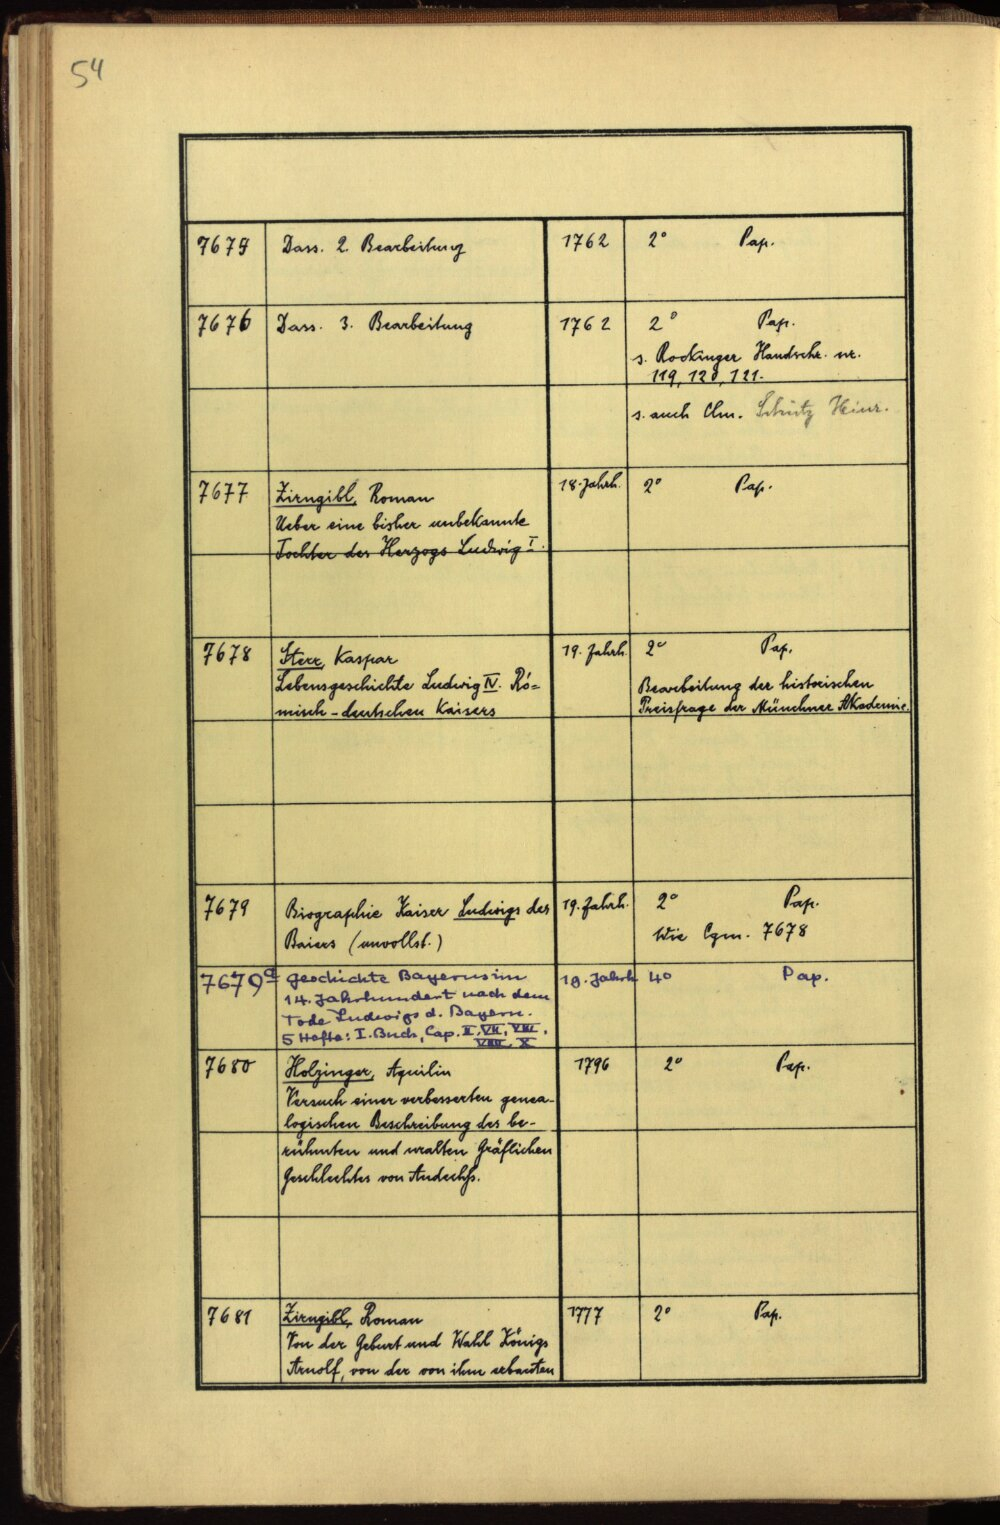 54
7675 Dass. 2. Bearbeitung 1762 2° Pap.
7676 Dass. 3. Bearbeitung 1762 2° Pap.
s. Rockinger Handschr. nr.
119, 120, 121.
s. auch Clm. Schütz Heinr.
7677 Zirngibl, Roman 18. Jahrh. 2° Pap.
Ueber eine bisher unbekannte
Tochter des Herzogs Ludwig I.
7678 Sterr, Kaspar 19. Jahrh. 2° Pap.
Lebensgeschichte Ludwig IV. Rö= Bearbeitung der historischen
misch-deutschen Kaisers Preisfrage der Münchner Akademie.
7679 Biographie Kaiser Ludwigs des 19. Jahrh. 2° Pap.
Baiers (unvollst.) Wie Cgm. 7678
7679a Geschichte Bayerns im 19. Jahrh 4° Pap.
14. Jahrhundert nach dem
Tode Ludwigs d. Bayern.
5 Hefte: I. Buch, Cap. II, VII, VIII,
VIIII, X
7680 Holzinger, Aquilin 1796 2° Pap.
Versuch einer verbesserten genea-
logischen Beschreibung des be-
rühmten und uralten Gräflichen
Geschlechtes von Andechß.
7681 Zirngibl, Roman 1777 2° Pap.
Von der Geburt und Wahl Königs
Arnolf, von der von ihm erbauten